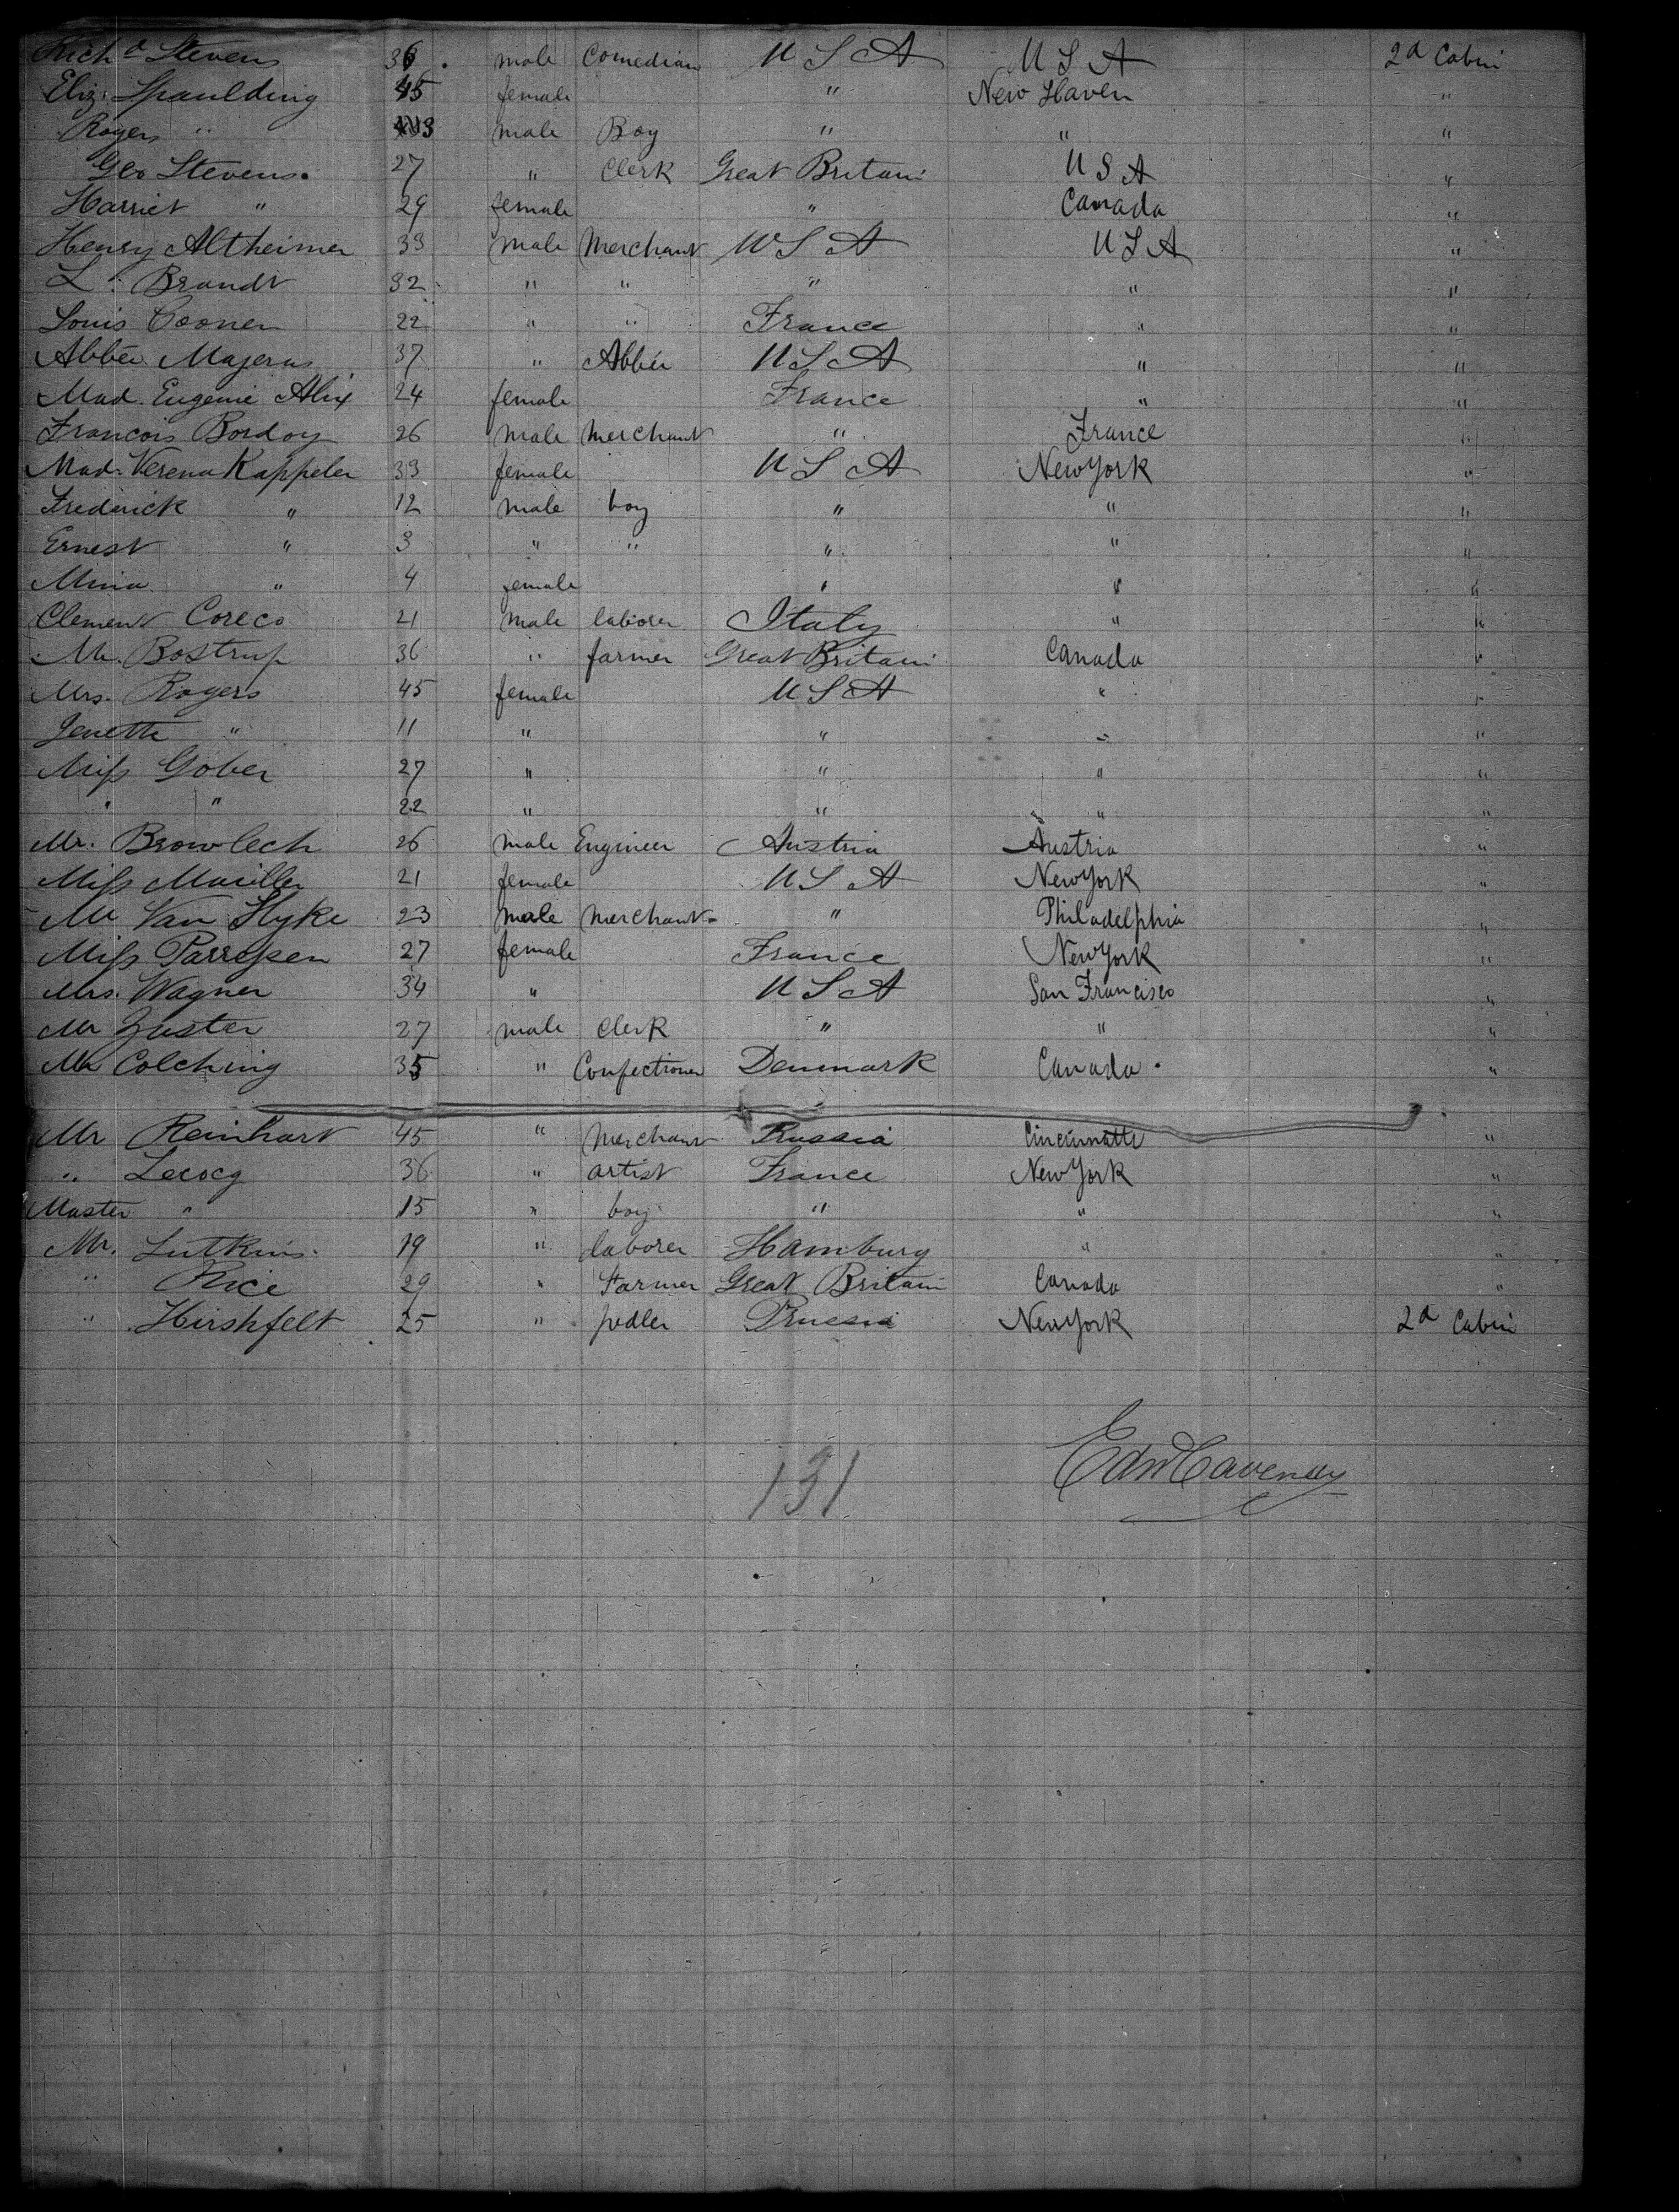 Rich d Stevens 36 male Comedian U S A U S A 2d Cabin
Eliz: Spaulding 45 female " New Haven "
Rogers " 13 male Boy " " "
Geo Stevens. 27 " Clerk Great Britain U S A "
Harriet " 29 female " Canada "
Henry Altheimer 33 male Merchant U S A U S A "
L. Brandt 32 " " " " "
Louis Coonen 22 " " France " "
Abbée Majerus 37 " Abbée U S A " "
Mad. Eugenie Alix 24 female France " "
Francois Bordoy 26 male Merchant " France "
Mad. Verena Kappeler 33 female U S A New York "
Frederick " 12 male boy " " "
Ernest " 3 " " " " "
Mina " 4 female " " "
Clement Coreco 21 male laborer Italy " "
Mr. Bostrup 36 " farmer Great Britain Canada "
Mrs. Rogers 45 female U S A " "
Jenette " 11 " " " "
Miss Gober 27 " " " "
" " 22 " " " "
Mr. Browlech 26 male Engineer Austria Austria "
Miss Mauiller 21 female U S A New York "
Mr Van Slyke 23 male Merchant " Philadelphia "
Miss 27 female France New York "
Mrs. Wagner 34 " U S A San Francisco "
Mr Zuster 27 male Clerk " " "
Mr Colching 35 " Confectioner Denmark Canada "
Mr Reinhart 45 " Merchant Prussia Cincinnatti "
" Lecocq 36 " artist France New York "
Master " 15 " boy " " "
Mr. Lutkins. 19 " laborer Hamburg " "
" Rice 29 " Farmer Great Britain Canada "
" Hirshfelt 25 " pedler Prussia New York 2d Cabin
131